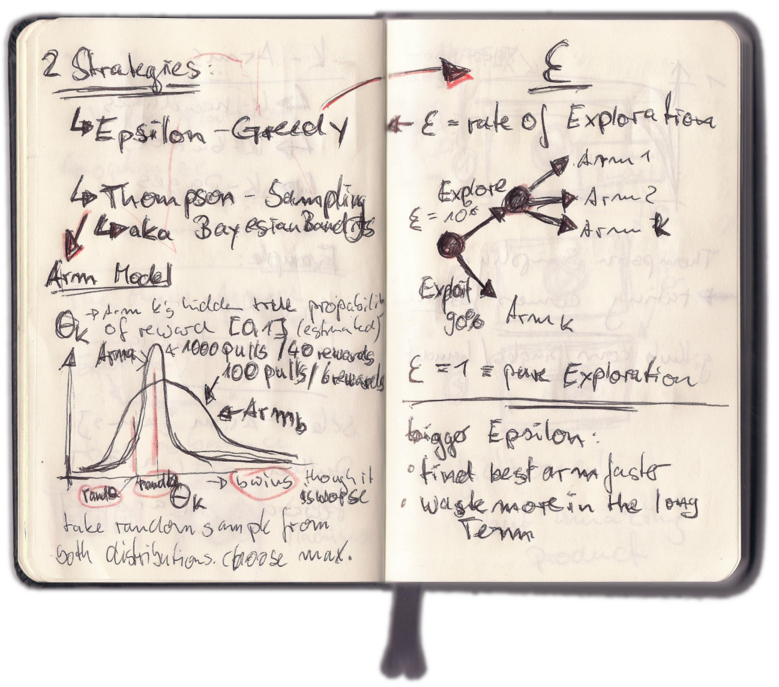 2 Strategies:
↳ Epsilon-Greedy
↳ Thompson-Sampling
↳ aka Bayesian Bandits
Arm Model
Θk → Arm k's hidden true propability
of reward [0,1] (estimated)
Arma ← 1000 pulls / 40 rewards
100 pulls / 6 rewards
← Armb
randa randb Θk → b wins though it
is worse
take random sample from
both distributions. choose max.
ε
← ε = rate of Exploration
Explore
ε = 10%
Arm 1
Arm 2
Arm k
Exploit
90%
Arm k
ε = 1 = pure Exploration
bigger Epsilon:
• find best arm faster
• waste more in the long
Term